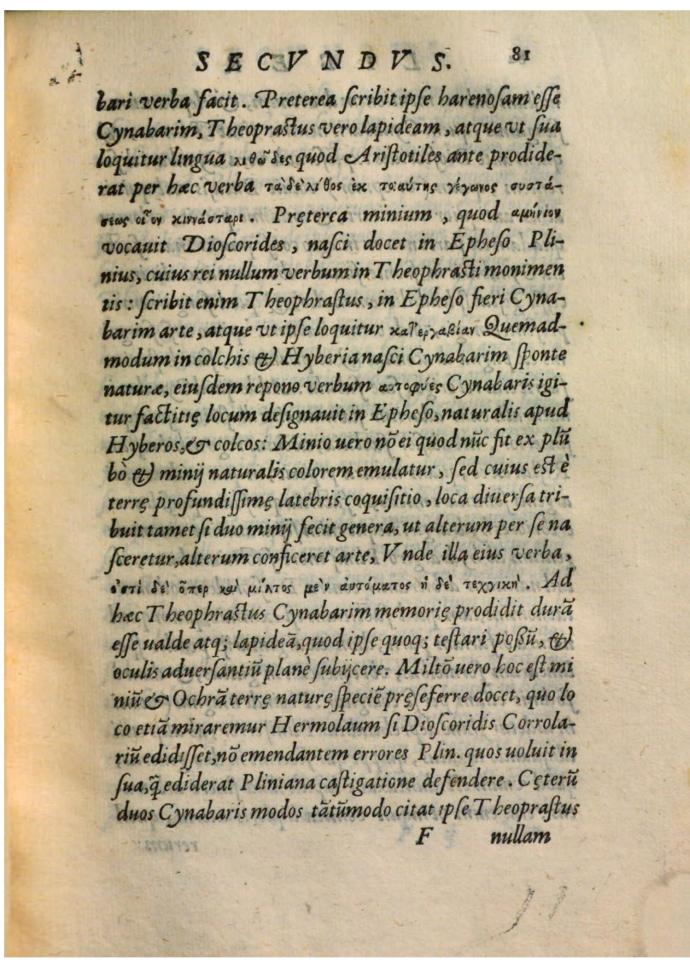 SECVNDVS. 81
bari verba facit. Preterea scribit ipse harenosam esse
Cynabarim, Theoprastus vero lapideam, atque vt sua
loquitur lingua λιθῶδες quod Aristotiles ante prodide-
rat per hæc verba τὰ δε λίθος ἐκ ταύτης γέγωνος συστά-
σεως οἷον κιννάσταρι. Pręterea minium, quod αμήνιον
vocauit Dioscorides, nasci docet in Epheso Pli-
nius, cuius rei nullum verbum in Theophrasti monimen
tis: scribit enim Theophrastus, in Epheso fieri Cyna-
barim arte, atque vt ipse loquitur Quemad-
modum in colchis & Hyberia nasci Cynabarim sponte
naturæ, eiusdem repono verbum αυτοφυές Cynabaris igi-
tur factitię locum designauit in Epheso, naturalis apud
Hyberos, & colcos: Minio uero nō ei quod nūc fit ex plū
bò & minij naturalis colorem emulatur, sed cuius est è
terrę profundissimę latebris coquisitio, loca diuersa tri-
buit tamet si duo minij fecit genera, ut alterum per se na
sceretur, alterum conficeret arte, Vnde illa eius verba,
ἐστὶ δε ὅπερ καὶ μίλτος μὲν ἀυτόματος ἡ δε τεχγικη. Ad
hæc Theophrastus Cynabarim memorię prodidit durā
esse ualde atq; lapideā, quod ipse quoq; testari possū, &
oculis aduersantiū planè subijcere. Miltō uero hoc est mi
niū & Ochrā terrę naturę speciē pręseferre docet, quo lo
co etiā miraremur Hermolaum si Dioscoridis Corrola-
riū edidisset, nō emendantem errores Plin. quos uoluit in
sua, q̃ ediderat Pliniana castigatione defendere. Cęterū
duos Cynabaris modos tātūmodo citat ipse Theoprastus
F nullam